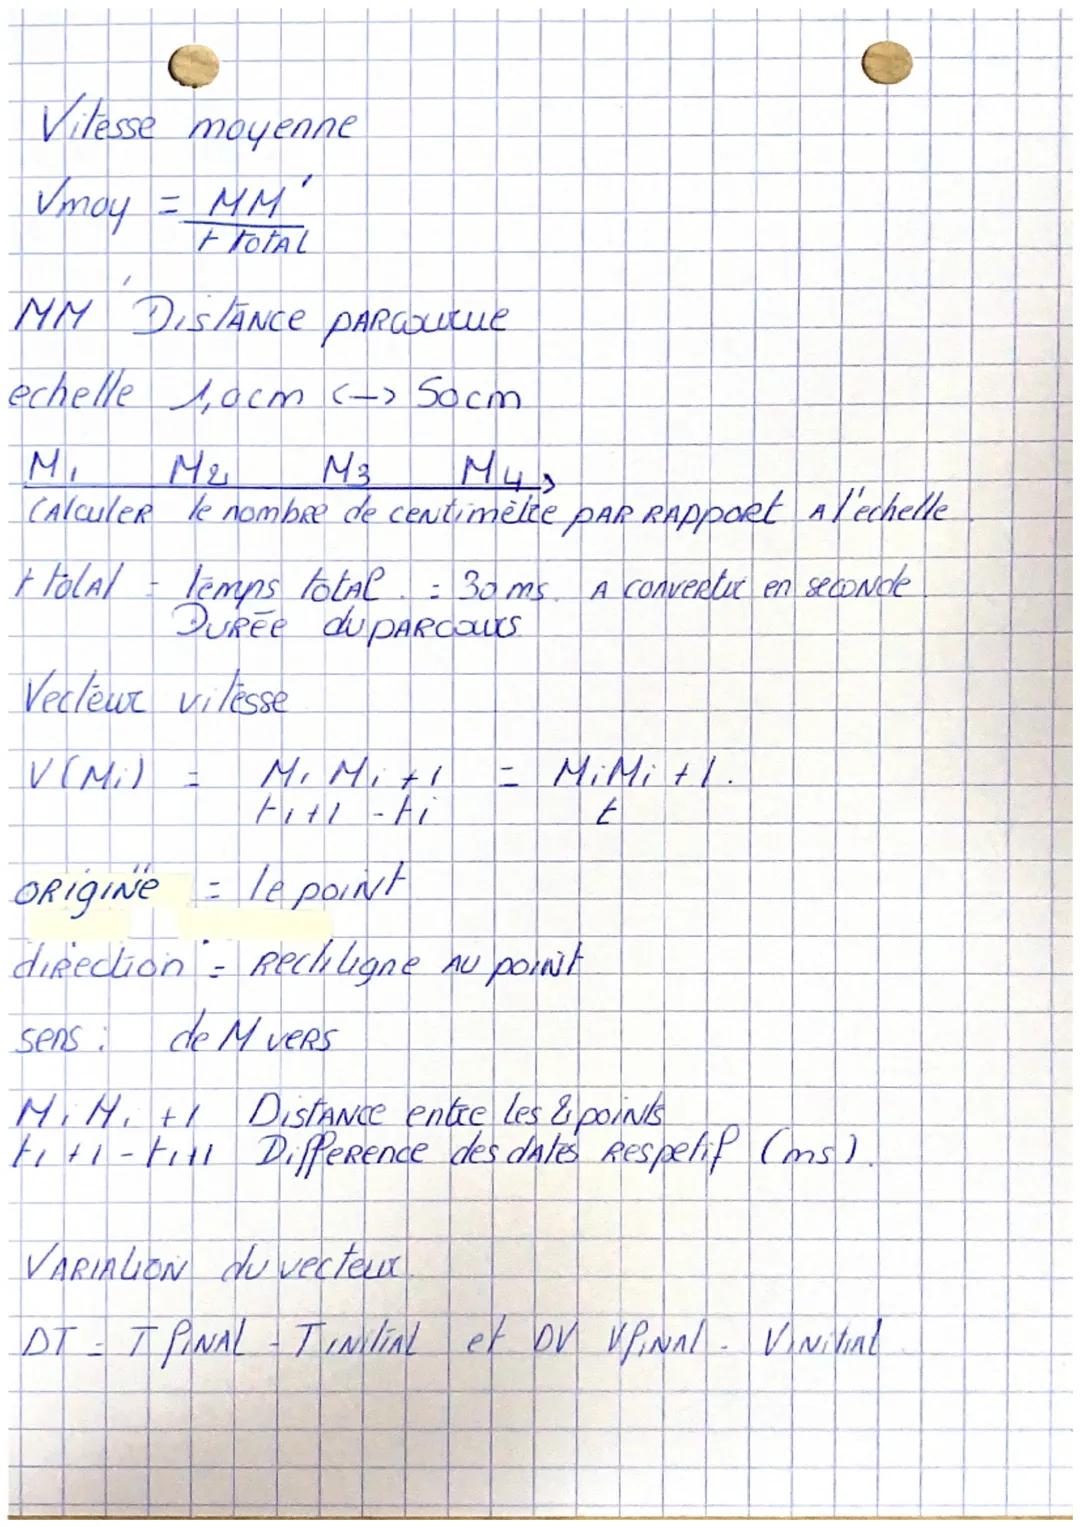 Vitesse moyenne
Vmoy = MM'
t TOTAL
MM' DisTANCE PARCourue
echelle 1,0cm <-> 50cm
M1 M2 M3 M4
CAlculER le nombre de cENtimètre PAR RAPPORt A l'echelle
t totAl = temps totAl. = 30 ms. A convertir en secoNde.
DURÉE du PARCours
Vecteur vitesse
V(Mi) = Mi Mi+1 = MiMi+1.
ti+1 - ti t
ORigiNe = le poiNt
direction = Rectiligne AU poiNt
sens : de M vers
Mi Mi+1 DistANce entre les 2 points
ti+1-ti+1 DiffeRence des dAtes Respetif (ms).
VARIAtiON du vecteur.
DT = T fiNAL - T iNitiAl et DV VfiNAl - ViNitiAl